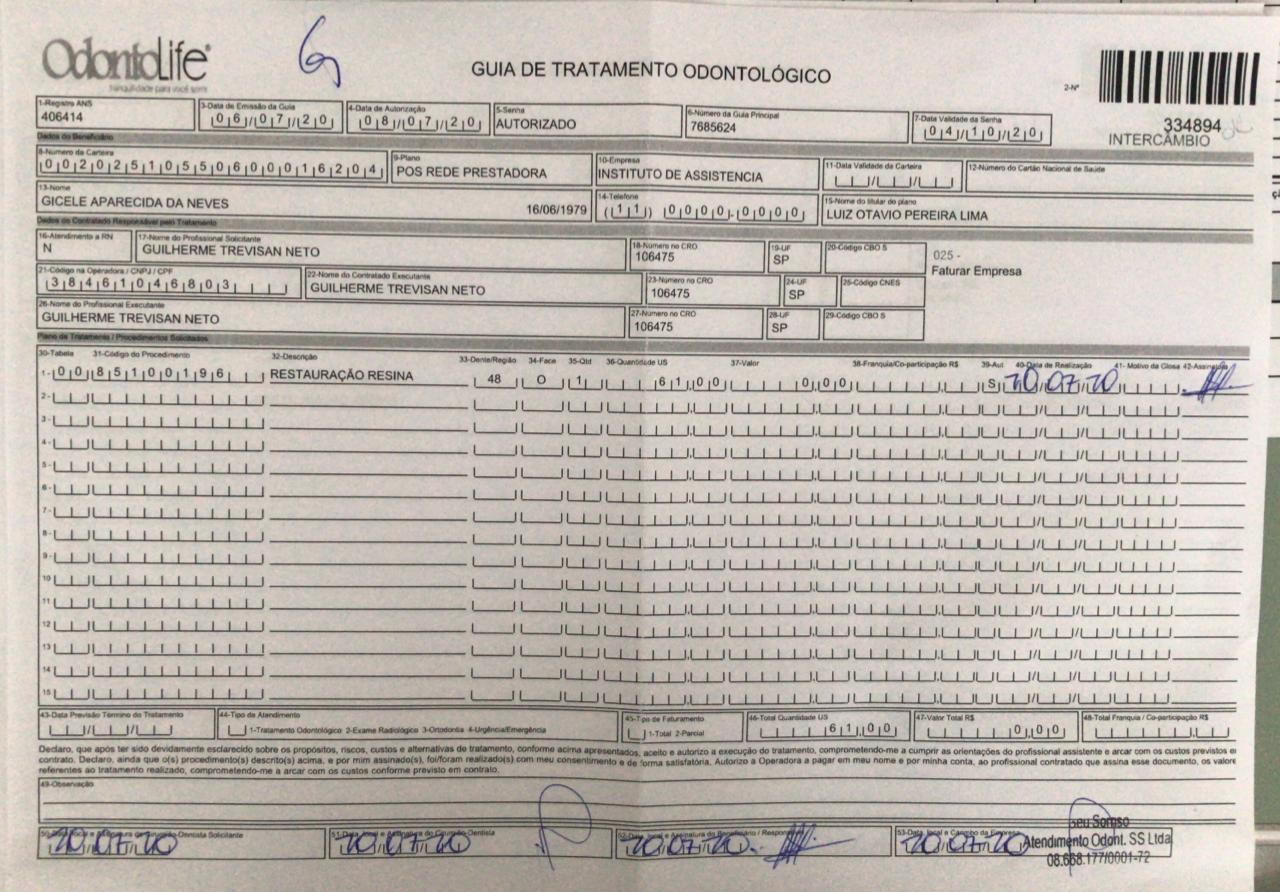 OdontoLife®
tranquilidade para você sorrir
GUIA DE TRATAMENTO ODONTOLÓGICO
2-Nº
334894
INTERCÂMBIO
1-Registro ANS
406414
3-Data de Emissão da Guia
06/07/20
4-Data de Autorização
08/07/20
5-Senha
AUTORIZADO
6-Número da Guia Principal
7685624
7-Data Validade da Senha
04/10/20
Dados do Beneficiário
8-Número da Carteira
00202510550600016204
9-Plano
POS REDE PRESTADORA
10-Empresa
INSTITUTO DE ASSISTENCIA
11-Data Validade da Carteira
12-Número do Cartão Nacional de Saúde
13-Nome
GICELE APARECIDA DA NEVES 16/06/1979
14-Telefone
(11) 0000-0000
15-Nome do titular do plano
LUIZ OTAVIO PEREIRA LIMA
Dados do Contratado Responsável pelo Tratamento
16-Atendimento a RN
N
17-Nome do Profissional Solicitante
GUILHERME TREVISAN NETO
18-Número no CRO
106475
19-UF
SP
20-Código CBO S
025 -
Faturar Empresa
21-Código na Operadora / CNPJ / CPF
38461046803
22-Nome do Contratado Executante
GUILHERME TREVISAN NETO
23-Número no CRO
106475
24-UF
SP
25-Código CNES
26-Nome do Profissional Executante
GUILHERME TREVISAN NETO
27-Número no CRO
106475
28-UF
SP
29-Código CBO S
Plano de Tratamento / Procedimentos Solicitados
30-Tabela 31-Código do Procedimento 32-Descrição 33-Dente/Região 34-Face 35-Qtd 36-Quantidade US 37-Valor 38-Franquia/Co-participação R$ 39-Aut 40-Data de Realização 41- Motivo da Glosa 42-Assinatura
1- 00 85100196 RESTAURAÇÃO RESINA 48 O 1 61,00 0,00 S 20/07/20
2-
3-
4-
5-
6-
7-
8-
9-
10
11
12
13
14
15
43-Data Previsão Término do Tratamento
44-Tipo de Atendimento
1-Tratamento Odontológico 2-Exame Radiológico 3-Ortodontia 4-Urgência/Emergência
45-Tipo de Faturamento
1-Total 2-Parcial
46-Total Quantidade US
61,00
47-Valor Total R$
0,00
48-Total Franquia / Co-participação R$
Declaro, que após ter sido devidamente esclarecido sobre os propósitos, riscos, custos e alternativas de tratamento, conforme acima apresentados, aceito e autorizo a execução do tratamento, comprometendo-me a cumprir as orientações do profissional assistente e arcar com os custos previstos em
contrato. Declaro, ainda que o(s) procedimento(s) descrito(s) acima, e por mim assinado(s), foi/foram realizado(s) com meu consentimento e de forma satisfatória. Autorizo a Operadora a pagar em meu nome e por minha conta, ao profissional contratado que assina esse documento, os valore
referentes ao tratamento realizado, comprometendo-me a arcar com os custos conforme previsto em contrato.
49-Observação
50-Data, local e Assinatura do Cirurgião-Dentista Solicitante
20/07/20
51-Data, local e Assinatura do Cirurgião-Dentista
20/07/20
52-Data, local e Assinatura do Beneficiário / Responsável
20/07/20
53-Data, local e Carimbo da Empresa
20/07/20
Seu Sorriso
Atendimento Odont. SS Ltda
08.668.177/0001-72